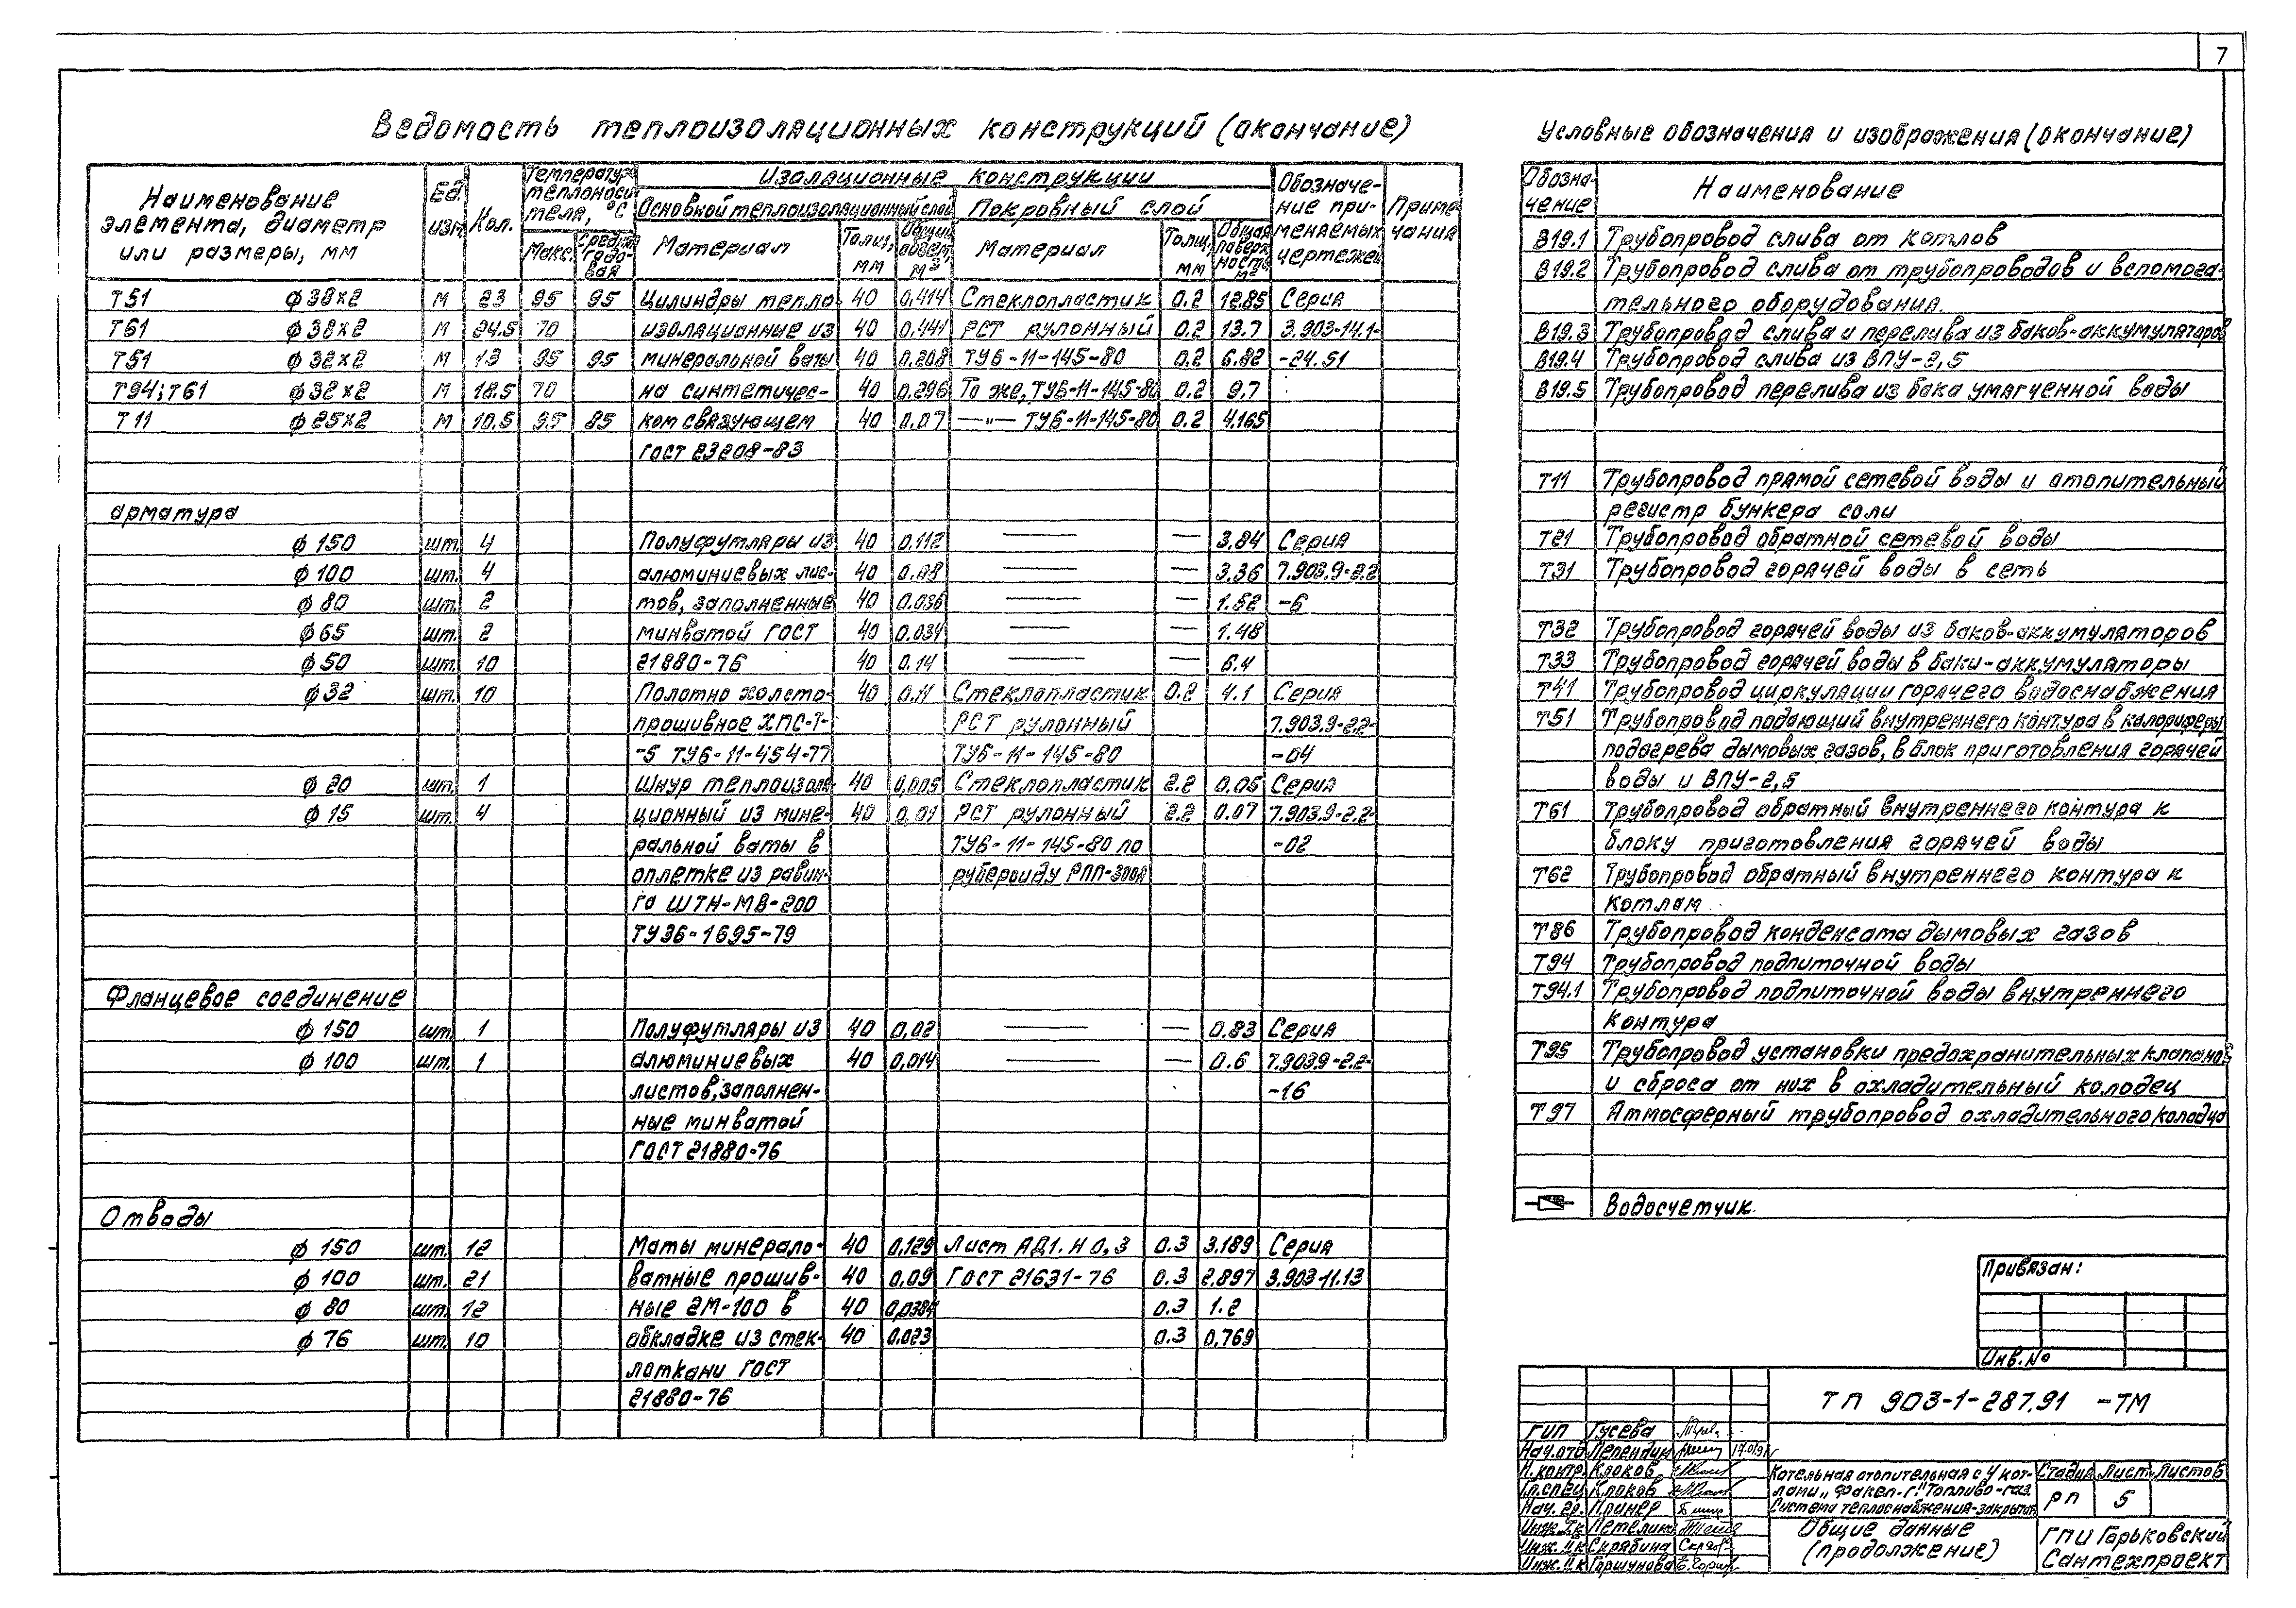 7
Ведомость теплоизоляционных конструкций (окончание)
Наименование элемента, диаметр или размеры, мм
Ед. изм.
Кол.
Температура теплоносителя, °С
Макс.
Средняя годовая
Изоляционные конструкции
Основной теплоизоляционный слой
Покровный слой
Материал
Толщ, мм
Общий объем, м³
Материал
Толщ, мм
Общая поверхность, м²
Обозначение применяемых чертежей
Примечания
Т51 ф38×2 м 23 95 95 Цилиндры тепло- 40 0,414 Стеклопластик 0.2 12.85 Серия
Т61 ф38×2 м 24.5 70 изоляционные из 40 0,441 РСТ рулонный 0.2 13.7 3.903-14.1-
Т51 ф32×2 м 13 95 95 минеральной ваты 40 0.208 ТУ6-11-145-80 0.2 6.82 -24.51
Т94; Т61 ф32×2 м 18.5 70 на синтетичес- 40 0.296 То же, ТУ6-11-145-80 0.2 9.7
Т11 ф25×2 м 10.5 95 85 ком связующем 40 0.07 —"— ТУ6-11-145-80 0.2 4.165
ГОСТ 23208-83
арматура
ф 150 шт. 4 Полуфутляры из 40 0.112 — — 3.84 Серия
ф 100 шт. 4 алюминиевых лис- 40 0.08 — — 3.36 7.903.9-2.2
ф 80 шт. 2 тов, заполненные 40 0.036 — — 1.52 -6
ф 65 шт. 2 минватой ГОСТ 40 0.034 — — 1.48
ф 50 шт. 10 21880-76 40 0.14 — — 6.4
ф 32 шт. 10 Полотно холсто- 40 0.11 Стеклопластик 0.2 4.1 Серия
прошивное ХПС-Т- РСТ рулонный 7.903.9-2.2-
-5 ТУ6-11-454-77 ТУ6-11-145-80 -04
ф 20 шт. 1 Шнур теплоизоля- 40 0,005 Стеклопластик 2.2 0.05 Серия
ф 15 шт. 4 ционный из мине- 40 0.01 РСТ рулонный 2.2 0.07 7.903.9-2.2-
ральной ваты в ТУ6-11-145-80 по -02
оплетке из равин- рубероиду РПП-300А
га ШТН-МВ-200
ТУ36-1695-79
Фланцевое соединение
ф 150 шт. 1 Полуфутляры из 40 0,02 — — 0.83 Серия
ф 100 шт. 1 алюминиевых 40 0,014 — — 0.6 7.903.9-2.2-
листов, заполнен- -16
ные минватой
ГОСТ 21880-76
Отводы
ф 150 шт. 12 Маты минерало- 40 0,129 Лист АД1.Н 0,3 0.3 3.189 Серия
ф 100 шт. 21 ватные прошив- 40 0,09 ГОСТ 21631-76 0.3 2.897 3.903-11.13
ф 80 шт. 12 ные 2М-100 в 40 0,0384 0.3 1.2
ф 76 шт. 10 обкладке из стек- 40 0.023 0.3 0,769
лоткани ГОСТ
21880-76
Условные обозначения и изображения (окончание)
Обозначение Наименование
В19.1 Трубопровод слива от котлов
В19.2 Трубопровод слива от трубопроводов и вспомога-
тельного оборудования.
В19.3 Трубопровод слива и перелива из баков-аккумуляторов
В19.4 Трубопровод слива из ВПУ-2,5
В19.5 Трубопровод перелива из бака умягченной воды
Т11 Трубопровод прямой сетевой воды и отопительный
регистр бункера соли
Т21 Трубопровод обратной сетевой воды
Т31 Трубопровод горячей воды в сеть
Т32 Трубопровод горячей воды из баков-аккумуляторов
Т33 Трубопровод горячей воды в баки-аккумуляторы
Т41 Трубопровод циркуляции горячего водоснабжения
Т51 Трубопровод подающий внутреннего контура в калориферы
подогрева дымовых газов, в блок приготовления горячей
воды и ВПУ-2,5
Т61 Трубопровод обратный внутреннего контура к
блоку приготовления горячей воды
Т62 Трубопровод обратный внутреннего контура к
котлам.
Т86 Трубопровод конденсата дымовых газов
Т94 Трубопровод подпиточной воды
Т94.1 Трубопровод подпиточной воды внутреннего
контура
Т95 Трубопровод установки предохранительных клапанов
и сброса от них в охладительный колодец
Т97 Атмосферный трубопровод охладительного колодца
Водосчетчик.
Привязан:
Инв.№
ТП 903-1-287.91 -ТМ
ГИП Гусева
Нач.отд
Н.контр. Клоков
Гл.спец Клоков
Нач. гр.
Инж. I к
Инж. II к Скрябина
Инж. II к Горшунова
Котельная отопительная с 4 кот-
лами „Факел-Г". Топливо-газ.
Система теплоснабжения-закрытая
Стадия Лист Листов
РП 5
Общие данные
(продолжение)
ГПИ Горьковский
Сантехпроект